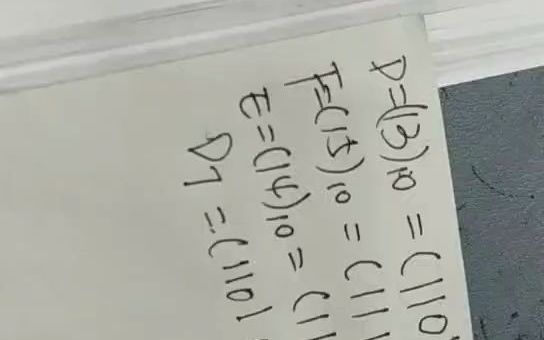 D=(13)10 = (110
F=(15)10 = (111
E=(14)10 = (11
D7 = (1101